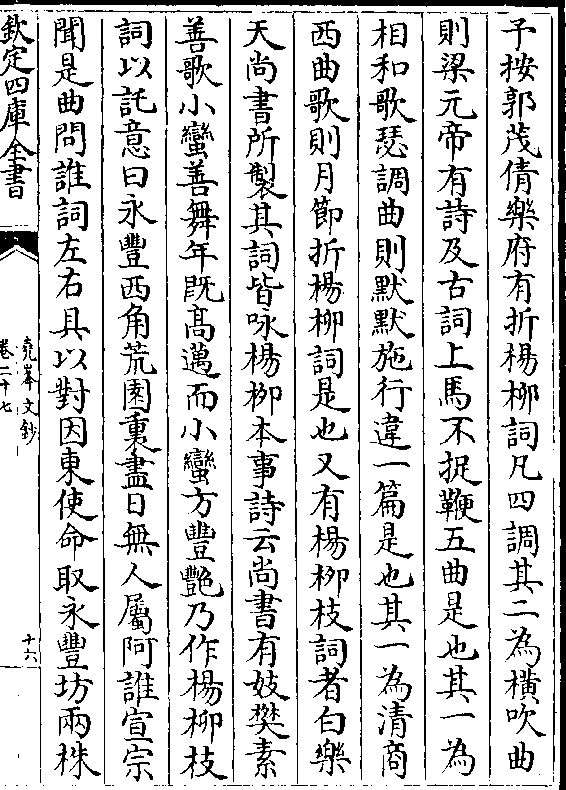 予按郭茂倩樂府有折楊柳詞凡四調其二為橫吹曲
則梁元帝有詩及古詞上馬不捉鞭五曲是也其一為
相和歌瑟調曲則默默施行違一篇是也其一為清商
西曲歌則月節折楊柳詞是也又有楊柳枝詞者白樂
天尚書所製其詞皆咏楊柳本事詩云尚書有妓樊素
善歌小蠻善舞年既髙邁而小蠻方豐艷乃作楊柳枝
詞以託意曰永豐西角荒園裏盡日無人屬阿誰宣宗
聞是曲問誰詞左右具以對因東使命取永豐坊兩株
欽定四庫全書
堯峯文鈔
卷二十七
十六